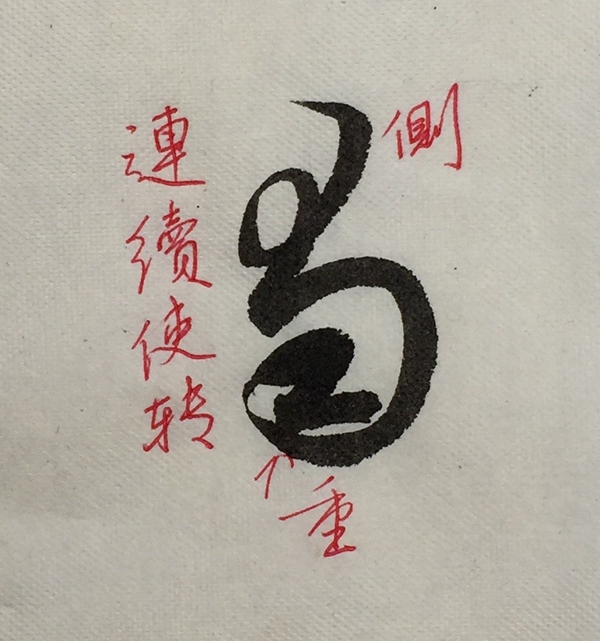 連續使转
側
重